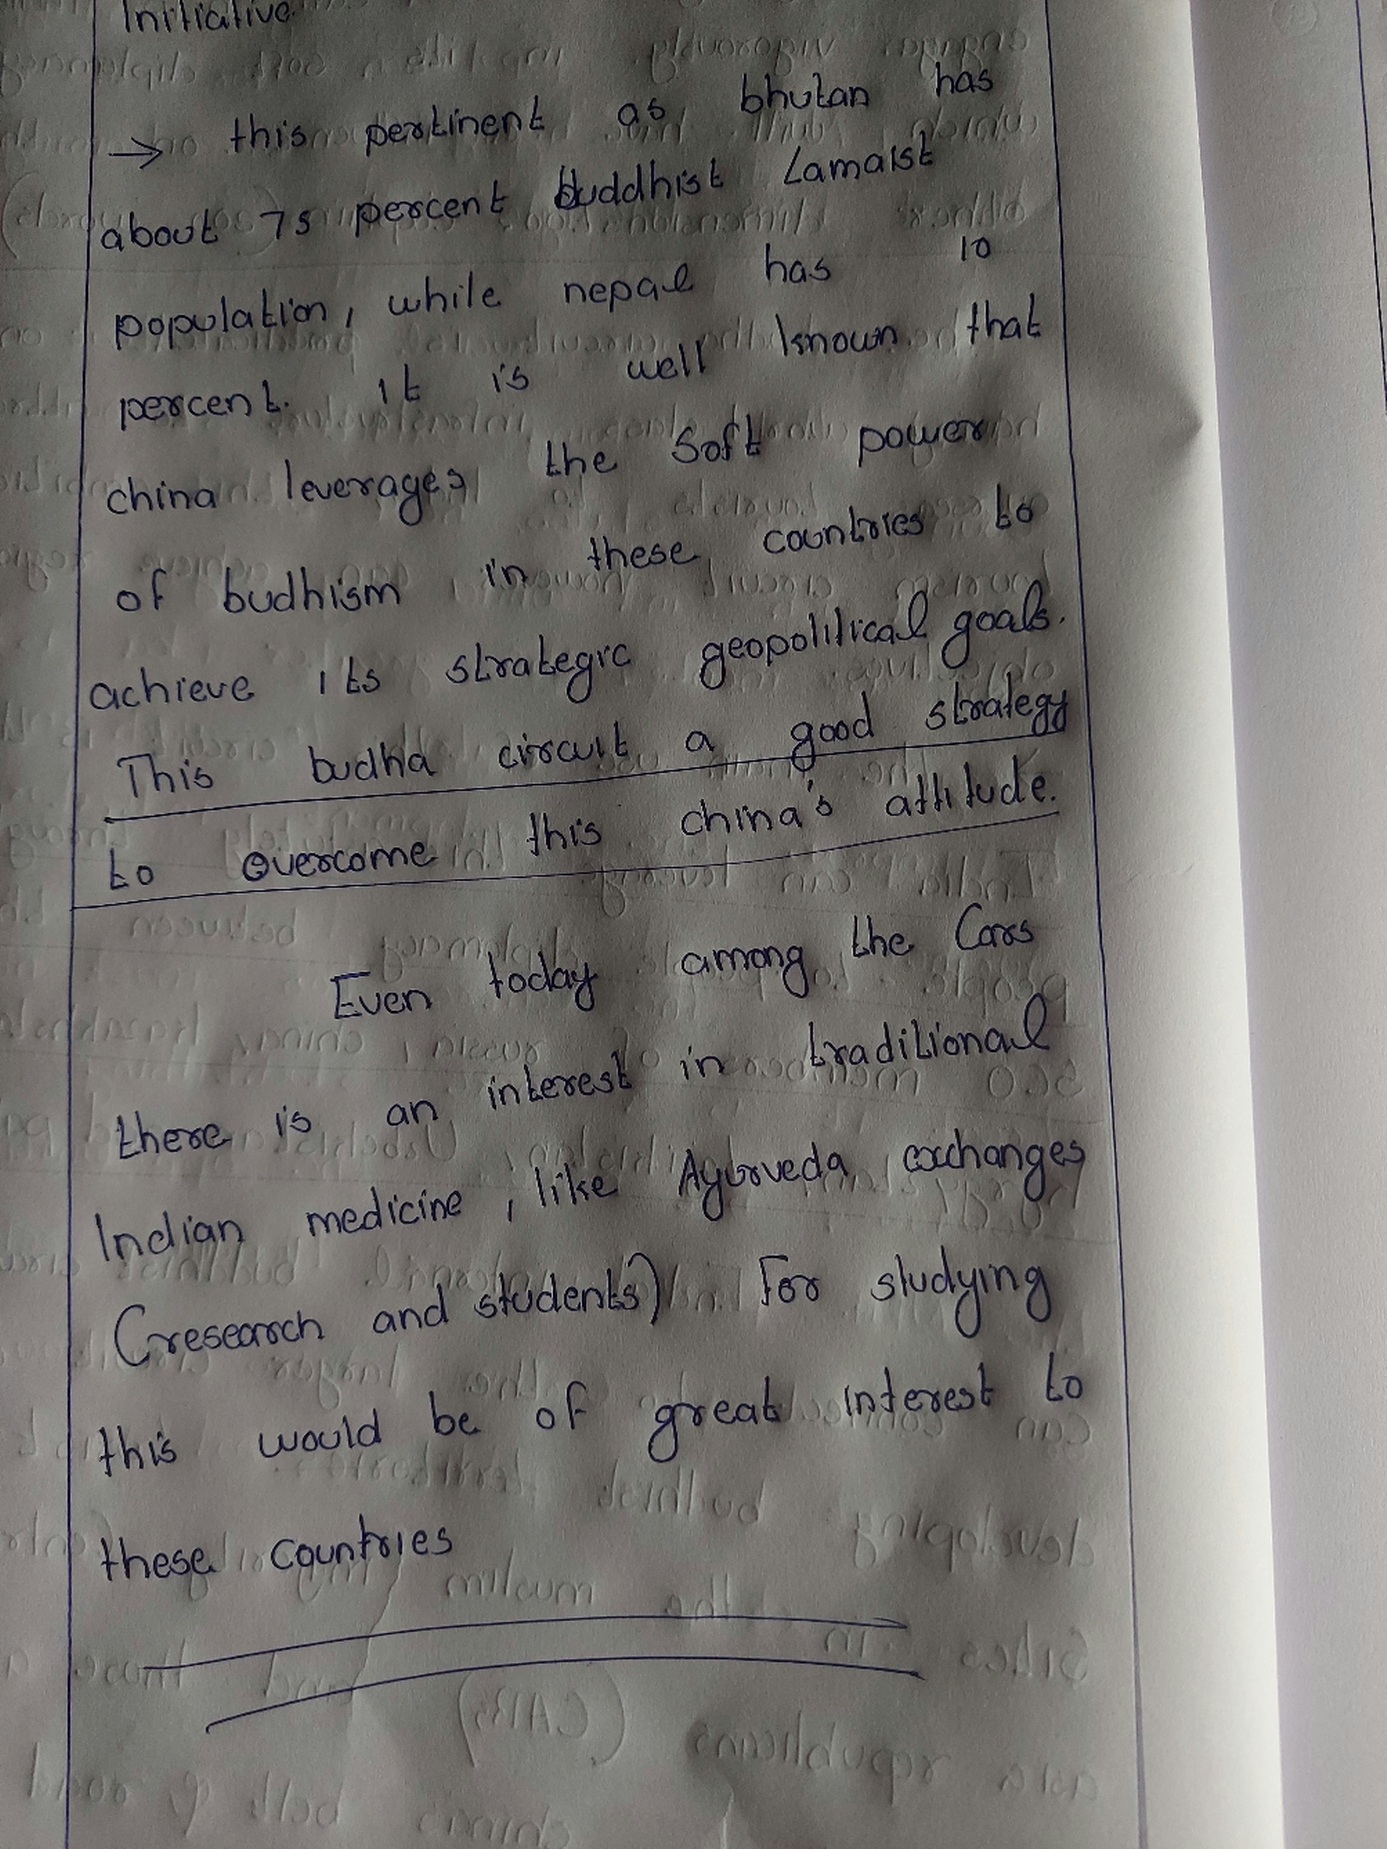 Initiative
→ this pertinent as bhutan has
about 75 percent buddhist Lamaist
population, while nepal has 10
percent. it is well known that
china leverages the soft power
of budhism in these countries to
achieve its strategic geopolitical goals.
This budha circuit a good strategy
to overcome this china's attitude.
Even today among the Cars
there is an interest in traditional
Indian medicine, like Ayurveda exchanges
(research and students) For studying
this would be of great interest to
these countries